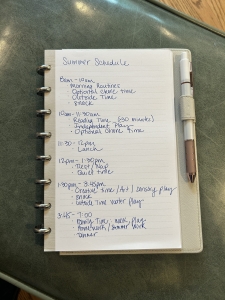 Summer Schedule
8am - 10am
Morning Routines
Optional Show Time
Outside Time
Snack
10am - 11:30am
Reading Time (30 minutes)
Independent Play
- Optional Show Time
11:30 - 12pm
- Lunch
12pm - 1:30pm
- Rest / Nap
- Quiet time
1:30pm - 3:45pm
- Creative time / Art / Sensory Play
- Snack
- Outside Time water play
3:45 - 7:00
- Family Time, walk, play
- Dinner